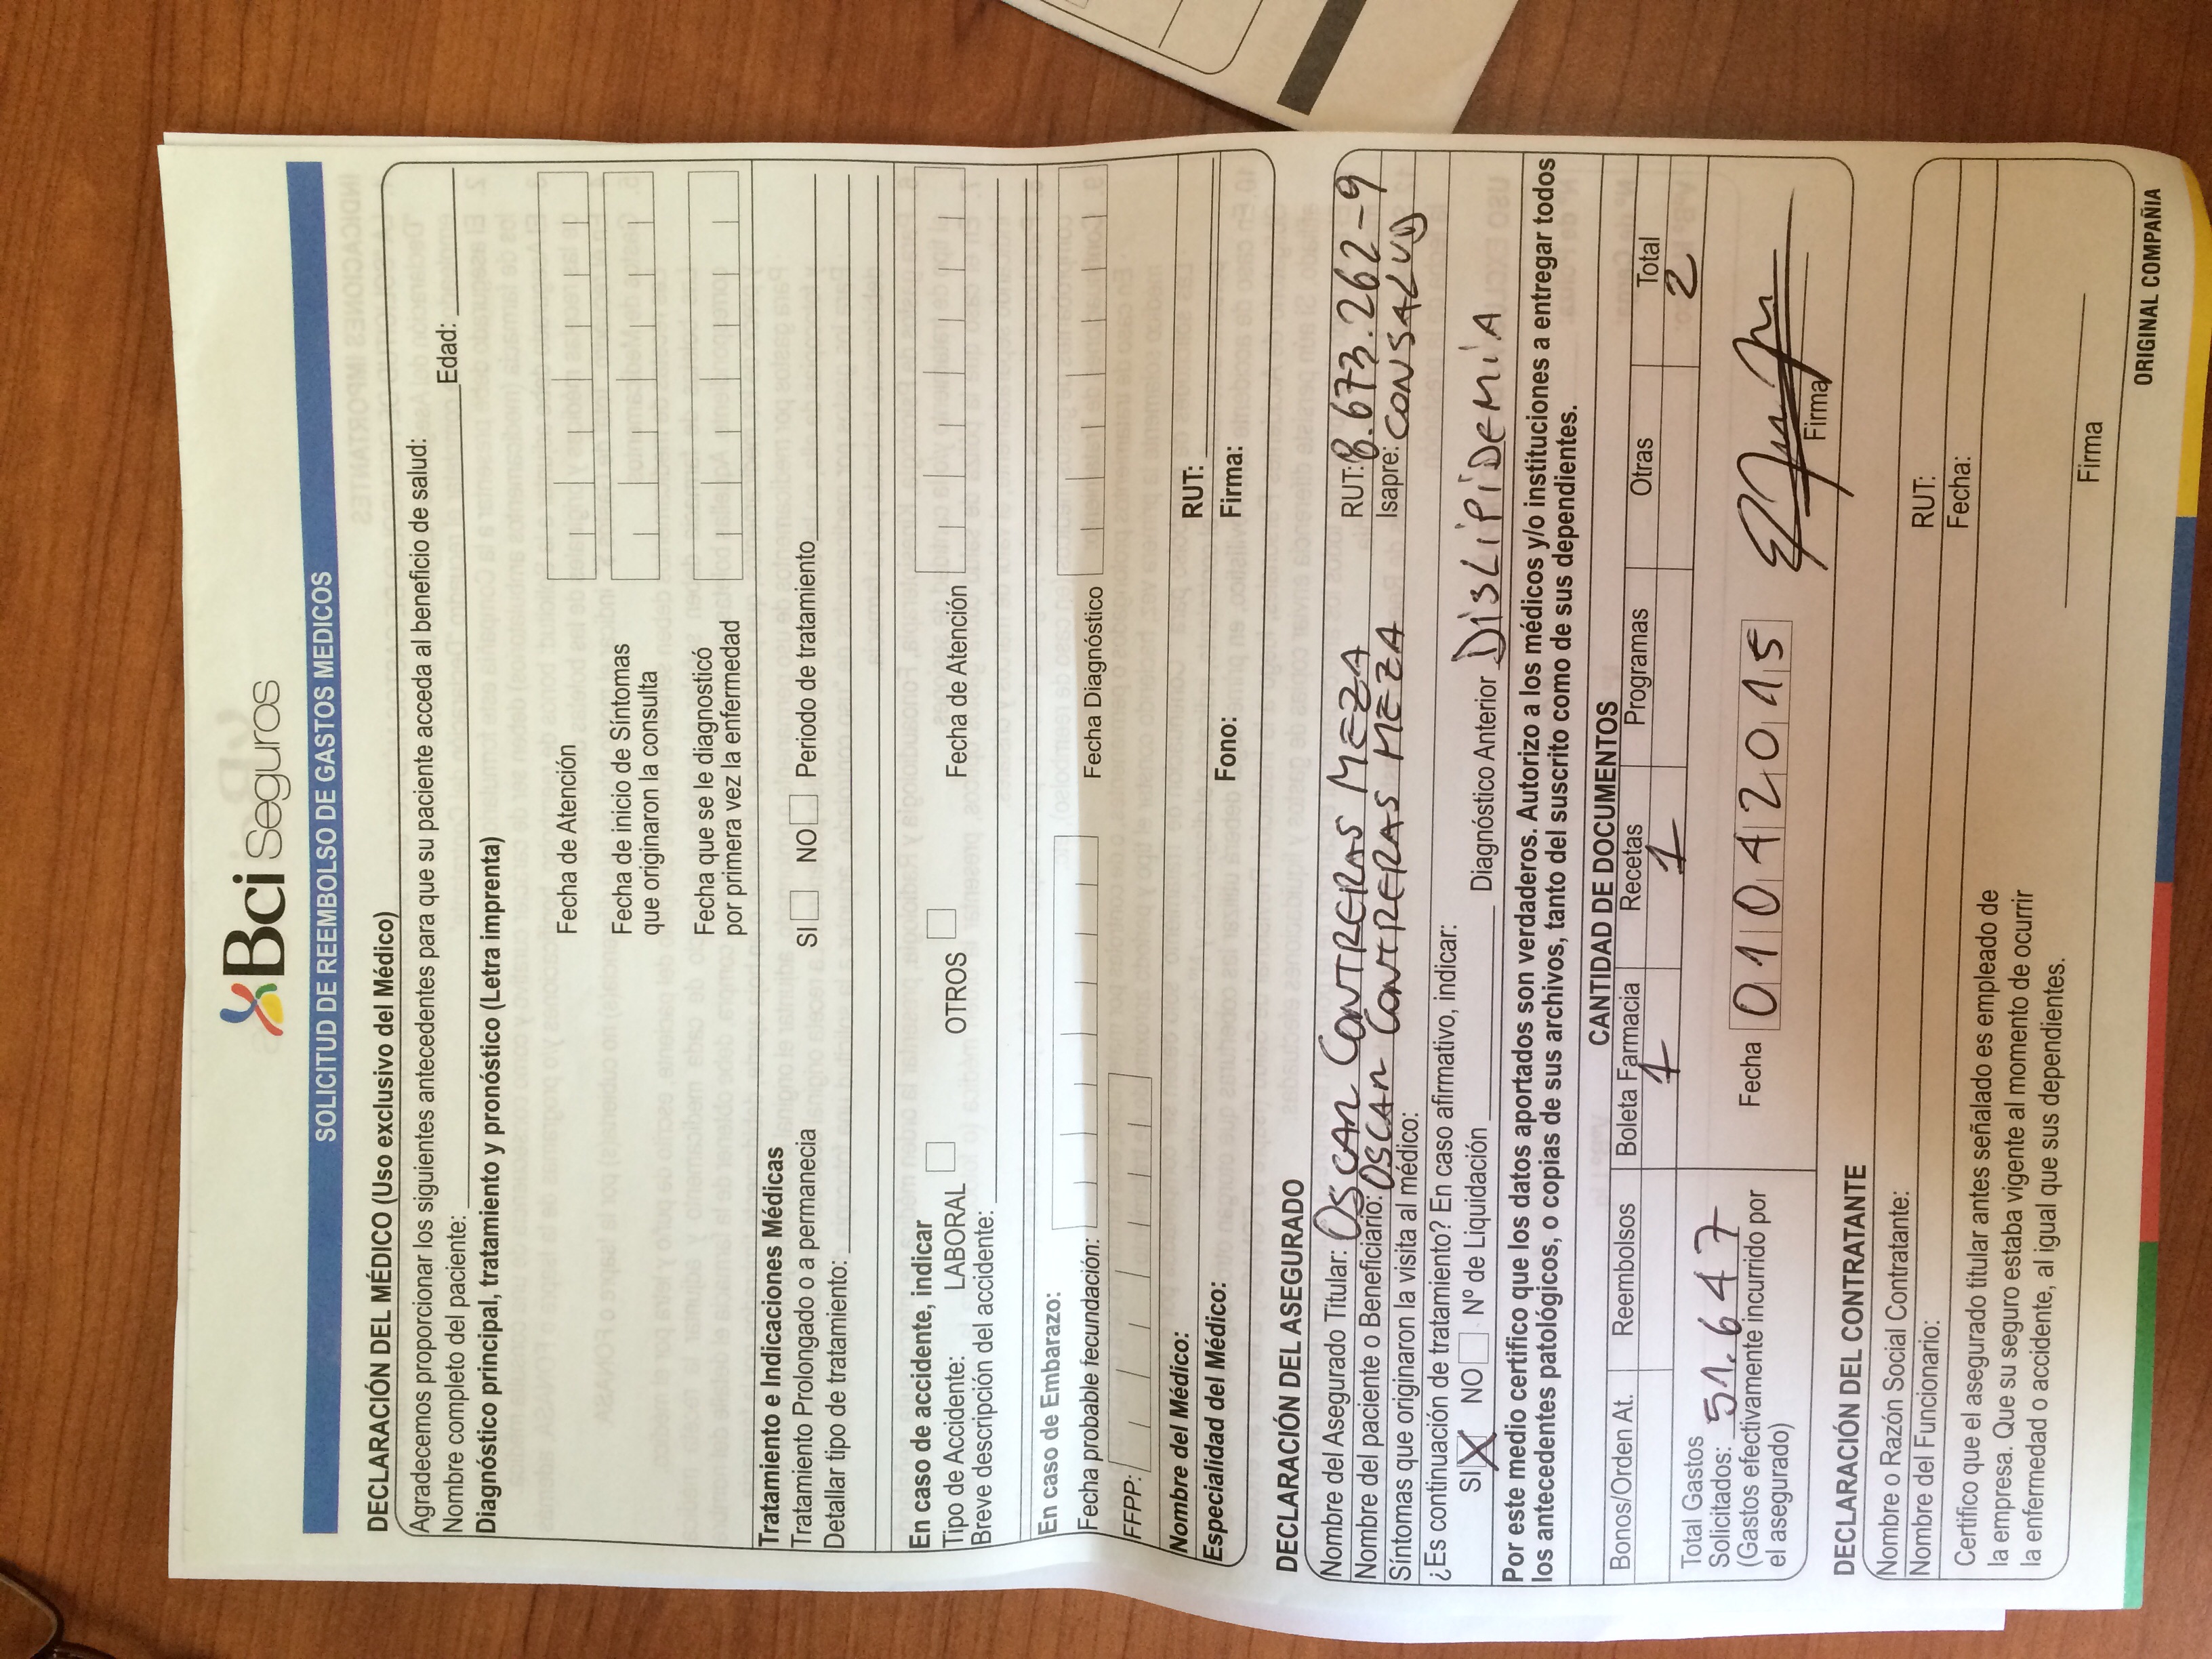 Bci Seguros
SOLICITUD DE REEMBOLSO DE GASTOS MEDICOS
DECLARACIÓN DEL MÉDICO (Uso exclusivo del Médico)
Agradecemos proporcionar los siguientes antecedentes para que su paciente acceda al beneficio de salud:
Nombre completo del paciente: Edad:
Diagnóstico principal, tratamiento y pronóstico (Letra imprenta)
Fecha de Atención
Fecha de inicio de Síntomas
que originaron la consulta
Fecha que se le diagnosticó
por primera vez la enfermedad
Tratamiento e Indicaciones Médicas
Tratamiento Prolongado o a permanecia SI NO Periodo de tratamiento
Detallar tipo de tratamiento:
En caso de accidente, indicar
Tipo de Accidente: LABORAL OTROS Fecha de Atención
Breve descripción del accidente:
En caso de Embarazo:
Fecha probable fecundación: Fecha Diagnóstico
FFPP:
Nombre del Médico: RUT:
Especialidad del Médico: Fono: Firma:
DECLARACIÓN DEL ASEGURADO
Nombre del Asegurado Titular: OSCAR CONTRERAS MEZA RUT: 8.673.262-9
Nombre del paciente o Beneficiario: OSCAR CONTRERAS MEZA Isapre: CONSALUD
Síntomas que originaron la visita al médico:
¿Es continuación de tratamiento? En caso afirmativo, indicar:
SI X NO Nº de Liquidación Diagnóstico Anterior DiSLiPiDEMiA
Por este medio certifico que los datos aportados son verdaderos. Autorizo a los médicos y/o instituciones a entregar todos
los antecedentes patológicos, o copias de sus archivos, tanto del suscrito como de sus dependientes.
CANTIDAD DE DOCUMENTOS
Bonos/Orden At. Reembolsos Boleta Farmacia Recetas Programas Otras Total
1 1 2
Total Gastos
Solicitados: 51.647
(Gastos efectivamente incurrido por
el asegurado)
Fecha 01042015
Firma
DECLARACIÓN DEL CONTRATANTE
Nombre o Razón Social Contratante:
Nombre del Funcionario: RUT:
Fecha:
Certifico que el asegurado titular antes señalado es empleado de
la empresa. Que su seguro estaba vigente al momento de ocurrir
la enfermedad o accidente, al igual que sus dependientes.
Firma
ORIGINAL COMPAÑIA